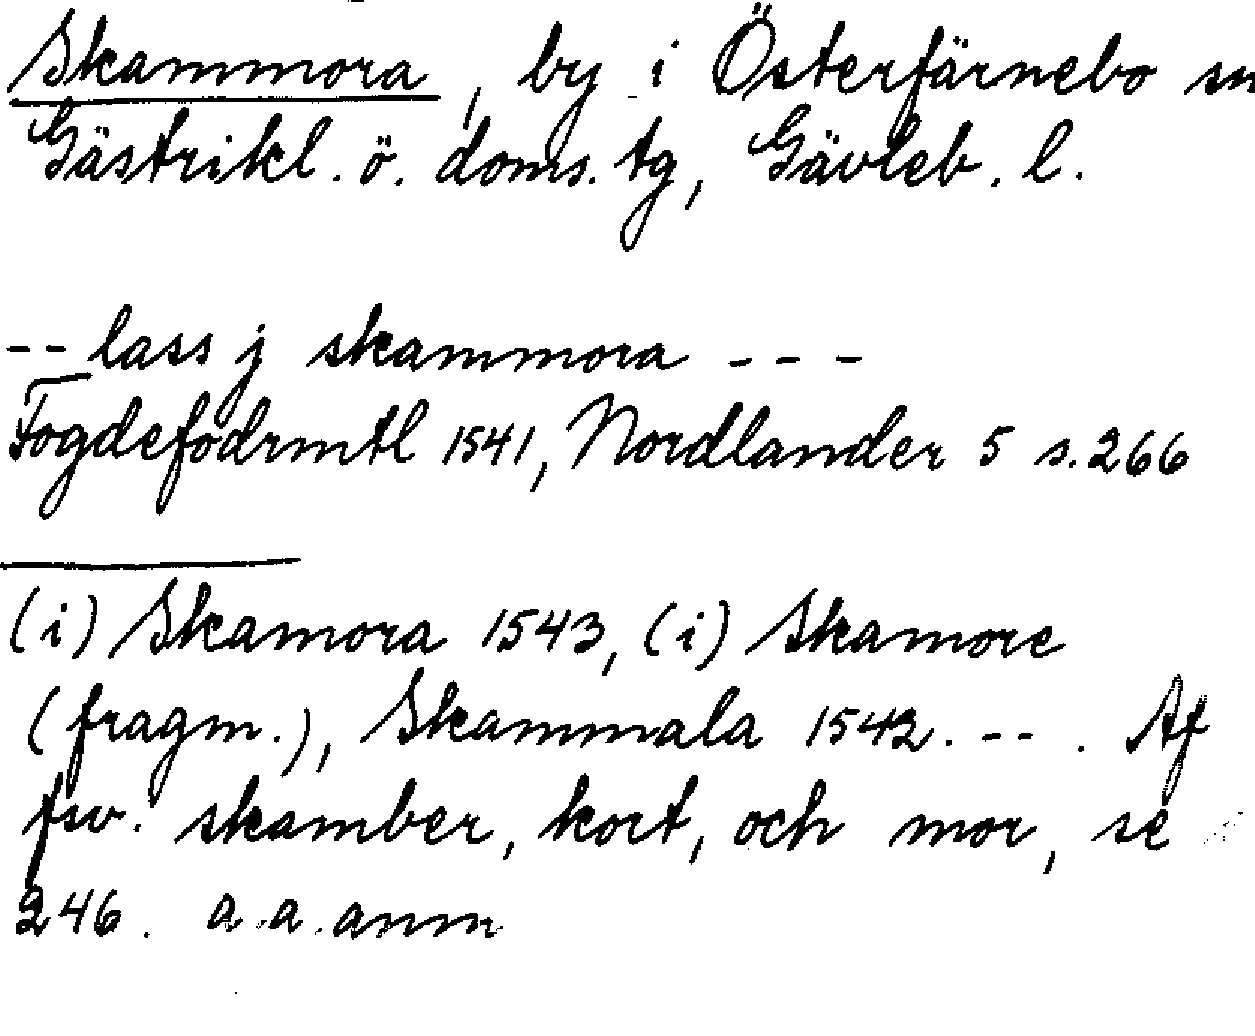 Skammora, by i Österfärnebo sn
Gästrikl. ö. doms. tg, Gävleb. l.
-- lass j skammora ---
Fogdefodrmtl 1541, Nordlander 5 s. 266
(i) Skamora 1543, (i) Skamore
(fragm.), Skammala 1542. -- . Af
fsv. skamber, kort, och mor, se
246. a.a. anm